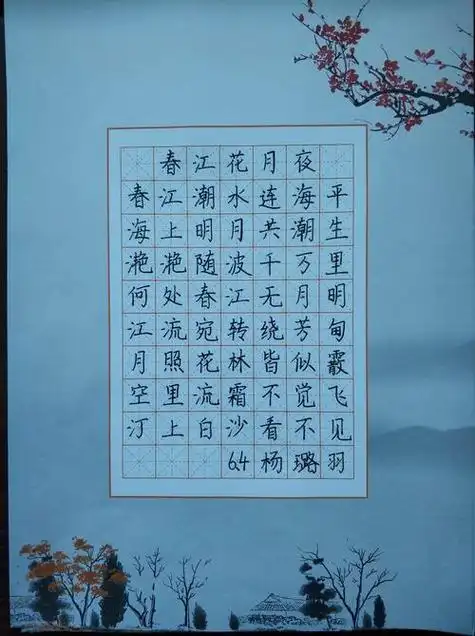 春江花月夜
春江潮水连海平
海上明月共潮生
滟滟随波千万里
何处春江无月明
江流宛转绕芳甸
月照花林皆似霰
空里流霜不觉飞
汀上白沙看不见
6.4杨璐羽